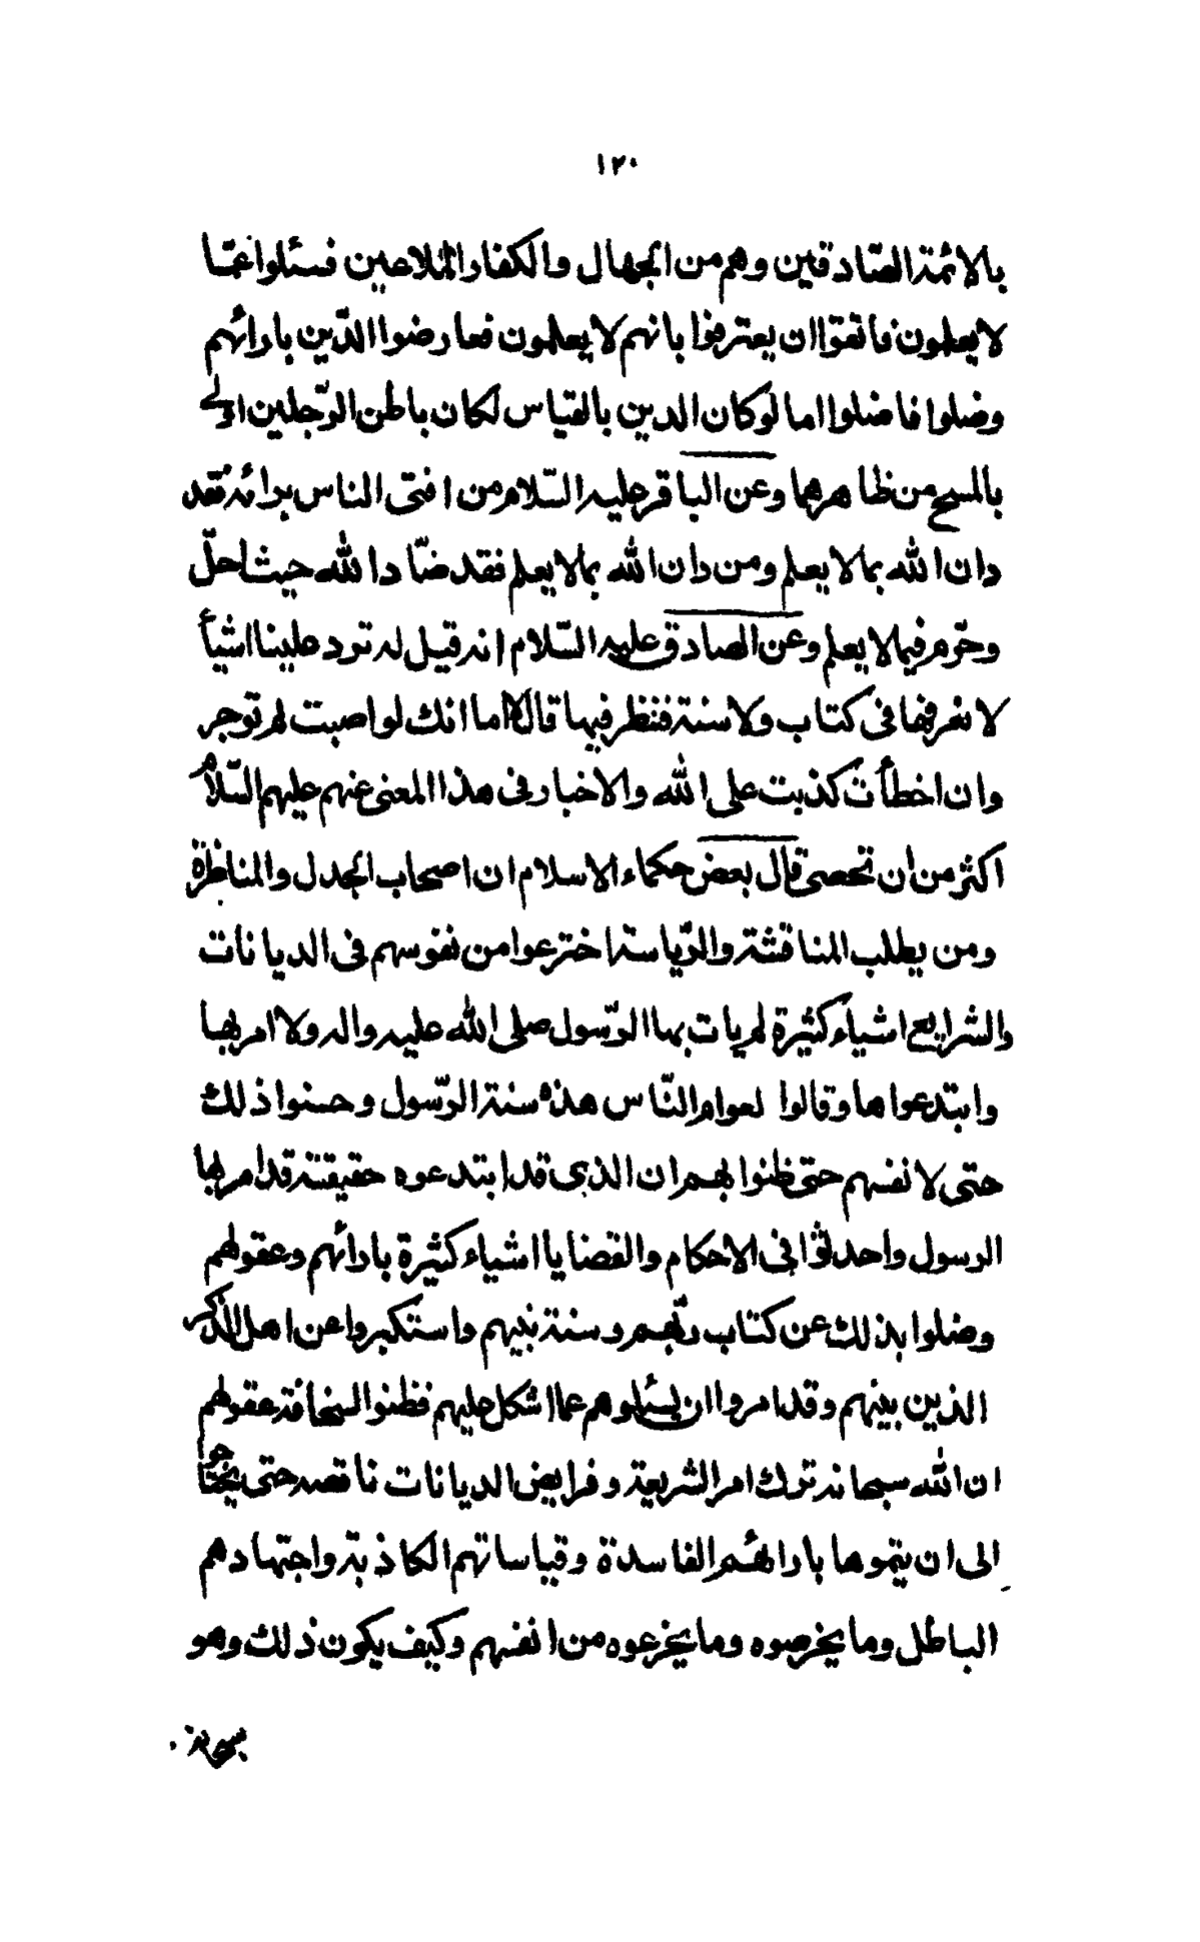 ١٢٠
بالائمة الصّادقين وهم من الجهال والكفار الملاعين فسئلوا عمّا
لا يعلمون فانفوا ان يعترفوا بانهم لا يعلمون فعارضوا الدّين بارائهم
وضلوا فاضلوا اما لو كان الدين بالقياس لكان باطن الرّجلين اولى
بالمسح من ظاهرهما وعن الباقر عليه السّلام من افتى الناس برائه فقد
دان الله بما لا يعلم ومن دان الله بما لا يعلم فقد ضّاد الله حيث احلّ
وحرّم فيما لا يعلم وعن الصادق عليه السّلام انه قيل له ترد علينا اشيآء
لا نعرفها فى كتاب ولا سنة فننظر فيها قال لا اما انك لو اصبت لم توجر
وان اخطأت كذبت على الله والاخبار فى هذا المعنى عنهم عليهم السّلام
اكثر من ان تحصى قال بعض حكماء الاسلام ان اصحاب الجدل والمناظرة
ومن يطلب المناقشة والرّياسة اخترعوا من نفوسهم فى الديانات
والشرايع اشياء كثيرة لم يات بها الرّسول صلى الله عليه واله ولا امر بها
وابتدعوا ها وقالوا لعوام النّاس هذه سنة الرّسول وحسنوا ذلك
حتى لانفسهم حتى ظنوا بهم ان الذى قد ابتدعوه حقيقة قد امر بها
الرسول واحدثوا فى الاحكام والقضايا اشياء كثيرة بارائهم وعقولهم
وضلوا بذلك عن كتاب ربّهم وسنة نبيهم واستكبروا عن اهل الذكر
الذين بينهم وقد امروا ان يسئلوهم عما اشكل عليهم فظنوا لسخافة عقولهم
ان الله سبحانه ترك امر الشريعة وفرايض الديانات ناقصة حتى يحتاجوا
الى ان يتموها بارائهم الفاسدة وقياساتهم الكاذبة واجتهادهم
الباطل وما يخرصوه وما يخترعوه من انفسهم وكيف يكون ذلك وهو
سبحانه